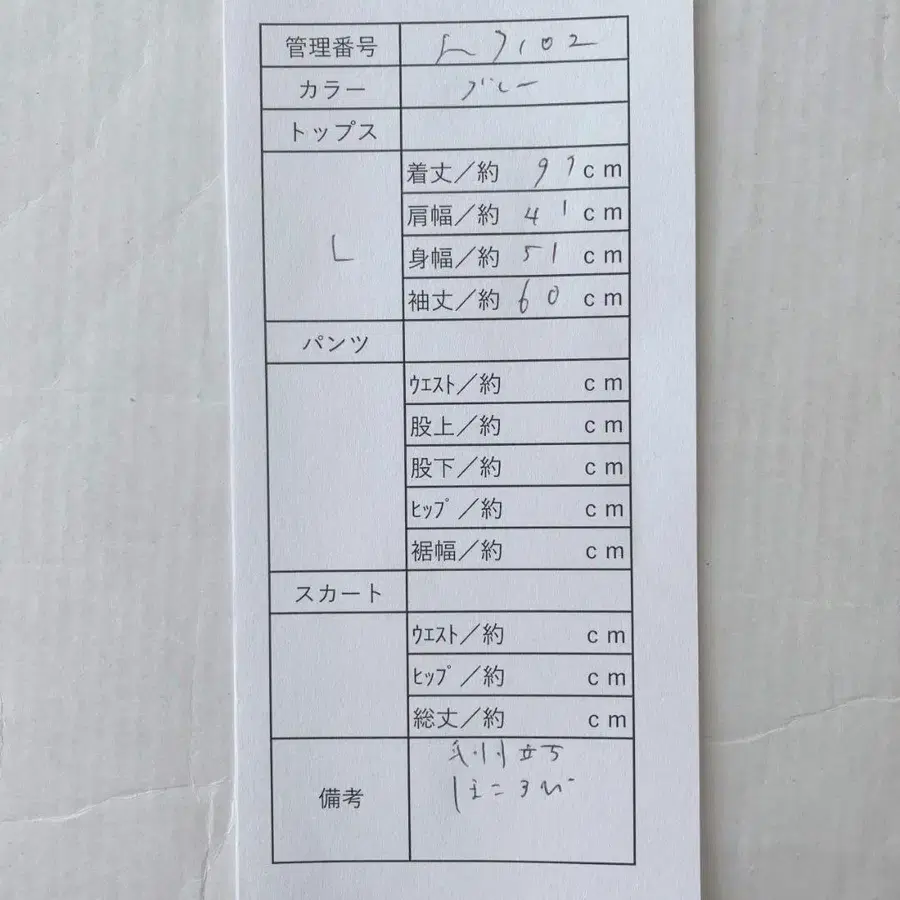 管理番号
カラー ブルー
トップス
L
着丈／約 97 cm
肩幅／約 41 cm
身幅／約 51 cm
袖丈／約 60 cm
パンツ
ｳｴｽﾄ／約 cm
股上／約 cm
股下／約 cm
ﾋｯﾌﾟ／約 cm
裾幅／約 cm
スカート
ｳｴｽﾄ／約 cm
ﾋｯﾌﾟ／約 cm
総丈／約 cm
備考
毛羽立ち
ほころび